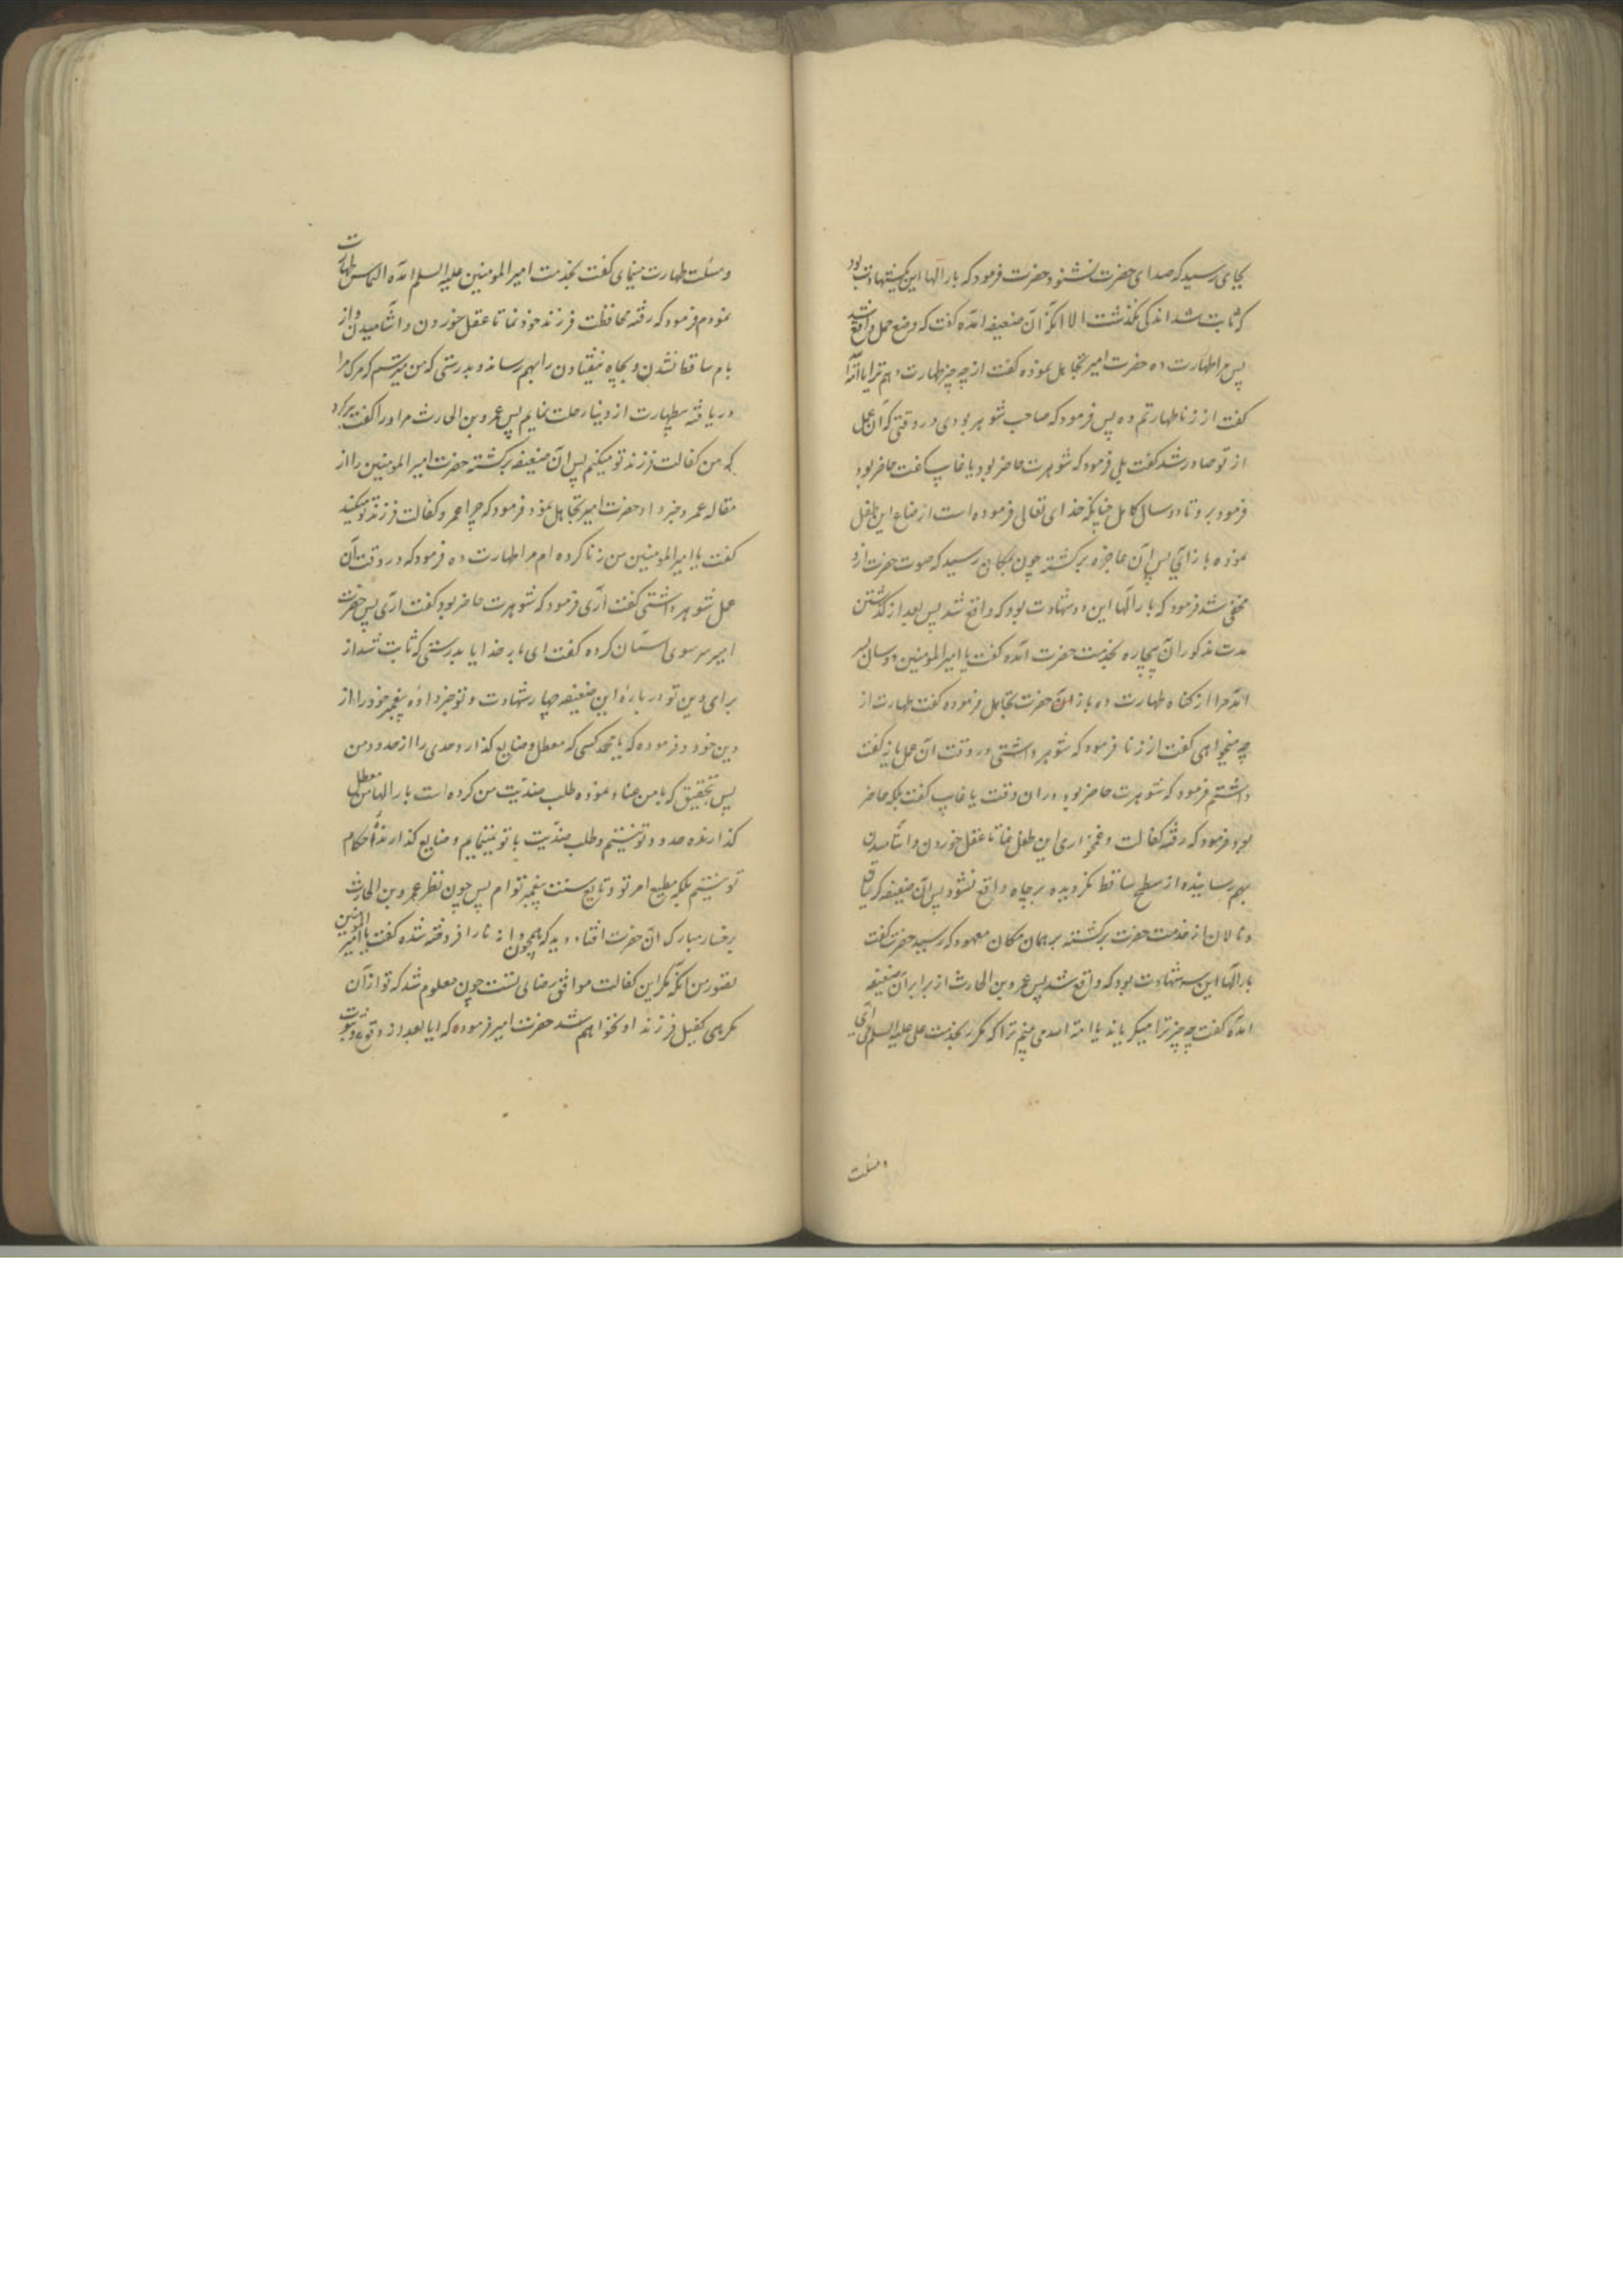 بجای رسید که صدای حضرت نشنود حضرت فرمود که بار الها این یکشهادت بود
که ثابت شد اندکی نگذشت الا انکه آن ضعیفه آمده گفت که وضع حمل واقع شد
پس مرا طهارت ده حضرت امیر تجاهل نموده گفت از چه چیز طهارت دهم ترا یا امة الله
گفت از زنا طهارتم ده پس فرمود که صاحب شوهر بودی در وقتی که آن عمل
از تو صادر شد گفت بلی فرمود که شوهرت حاضر بود یا غایب گفت حاضر بود
فرمود برو تا دو سال کامل چنانچه خدای تعالی فرموده است ارضاع این طفل
نموده باز آیی پس آن عاجزه برگشته چون بمکان رسید که صوت حضرت ازو
مخفی شد فرمود که بار آلها این دو شهادت بود که واقع شد پس بعد از گذشتن
مدت مذکور آن بیچاره بخدمت حضرت آمده گفت یا امیر المومنین دو سال بسر
آمد مرا از گناه طهارت ده باز آن حضرت تجاهل فرموده گفت طهارت از
چه میخواهی گفت از زنا فرمود که شوهر داشتی در وقت آن عمل یا نه گفت
داشتم فرمود که شوهرت حاضر بود در ان وقت یا غایب گفت بلکه حاضر
بود فرمود که رفته کفالت و غمخواری این طفل نما تا عقل خوردن و آشامیدن
بهم رسانیده از سطح ساقط نگردیده بر چاه واقع نشود پس آن ضعیفه گریان
و نالان از خدمت حضرت برگشته بر همان مکان معهود که رسید حضرت گفت
بار الها این سه شهادت بود که واقع شد پس عمرو بن الحارث از برابر آن ضعیفه
آمده گفت چه چیز ترا میگریاند یا امة الله می بینم ترا که مکرر بخدمت علی علیه السلم می آیی
ومسلت
ومسلت طهارت مینمای گفت بخدمت امیر المومنین علیه السلم آمده التماس طهارت
نمودم فرمود که رفته محافظت فرزند خود نما تا عقل خوردن و آشامیدن و از
بام ساقط نشدن و بچاه نیفتادن را بهم رساند و بدرستی که من میترسم که مرگ مرا
دریافته بیطهارت از دنیا رحلت نمایم پس عمرو بن الحارث مر او را گفت برگرد
که من کفالت فرزند تو میکنم پس آن ضعیفه برگشته حضرت امیر المومنین را از
مقاله عمرو خبر داد حضرت امیر تجاهل نمود فرمود که چرا عمرو کفالت فرزند تو میکند
گفت یا امیر المومنین من زنا کرده ام مرا طهارت ده فرمود که در وقت آن
عمل شوهر داشتی گفت آری فرمود که شوهرت حاضر بود گفت آری پس حضرت
امیر سر سوی آسمان کرده گفت ای بار خدایا بدرستی که ثابت شد از
برای دین تو در باره این ضعیفه چهار شهادت و تو خبر داده پیغمبر خود را از
دین خود و فرموده که یا محمد کسی که معطل و ضایع گذارد حدی را از حدود من
پس بتحقیق که با من عناد نموده طلب ضدیت من کرده است بار الها من معطل
گذارنده حدود تو نیستم و طلب ضدیت با تو نمینمایم و ضایع گذارنده احکام
تو نیستم بلکه مطیع امر تو و تابع سنت پیغمبر توام پس چون نظر عمرو بن الحارث
برخسار مبارک آن حضرت افتاد دید که همچون دانه نار افروخته شده گفت یا امیر المومنین
تصور من آنکه مگر این کفالت موافق رضای تست چون معلوم شد که تو از آن
مکرهی کفیل فرزند او نخواهم شد حضرت امیر فرموده که ایا بعد از وقوع و ثبوت